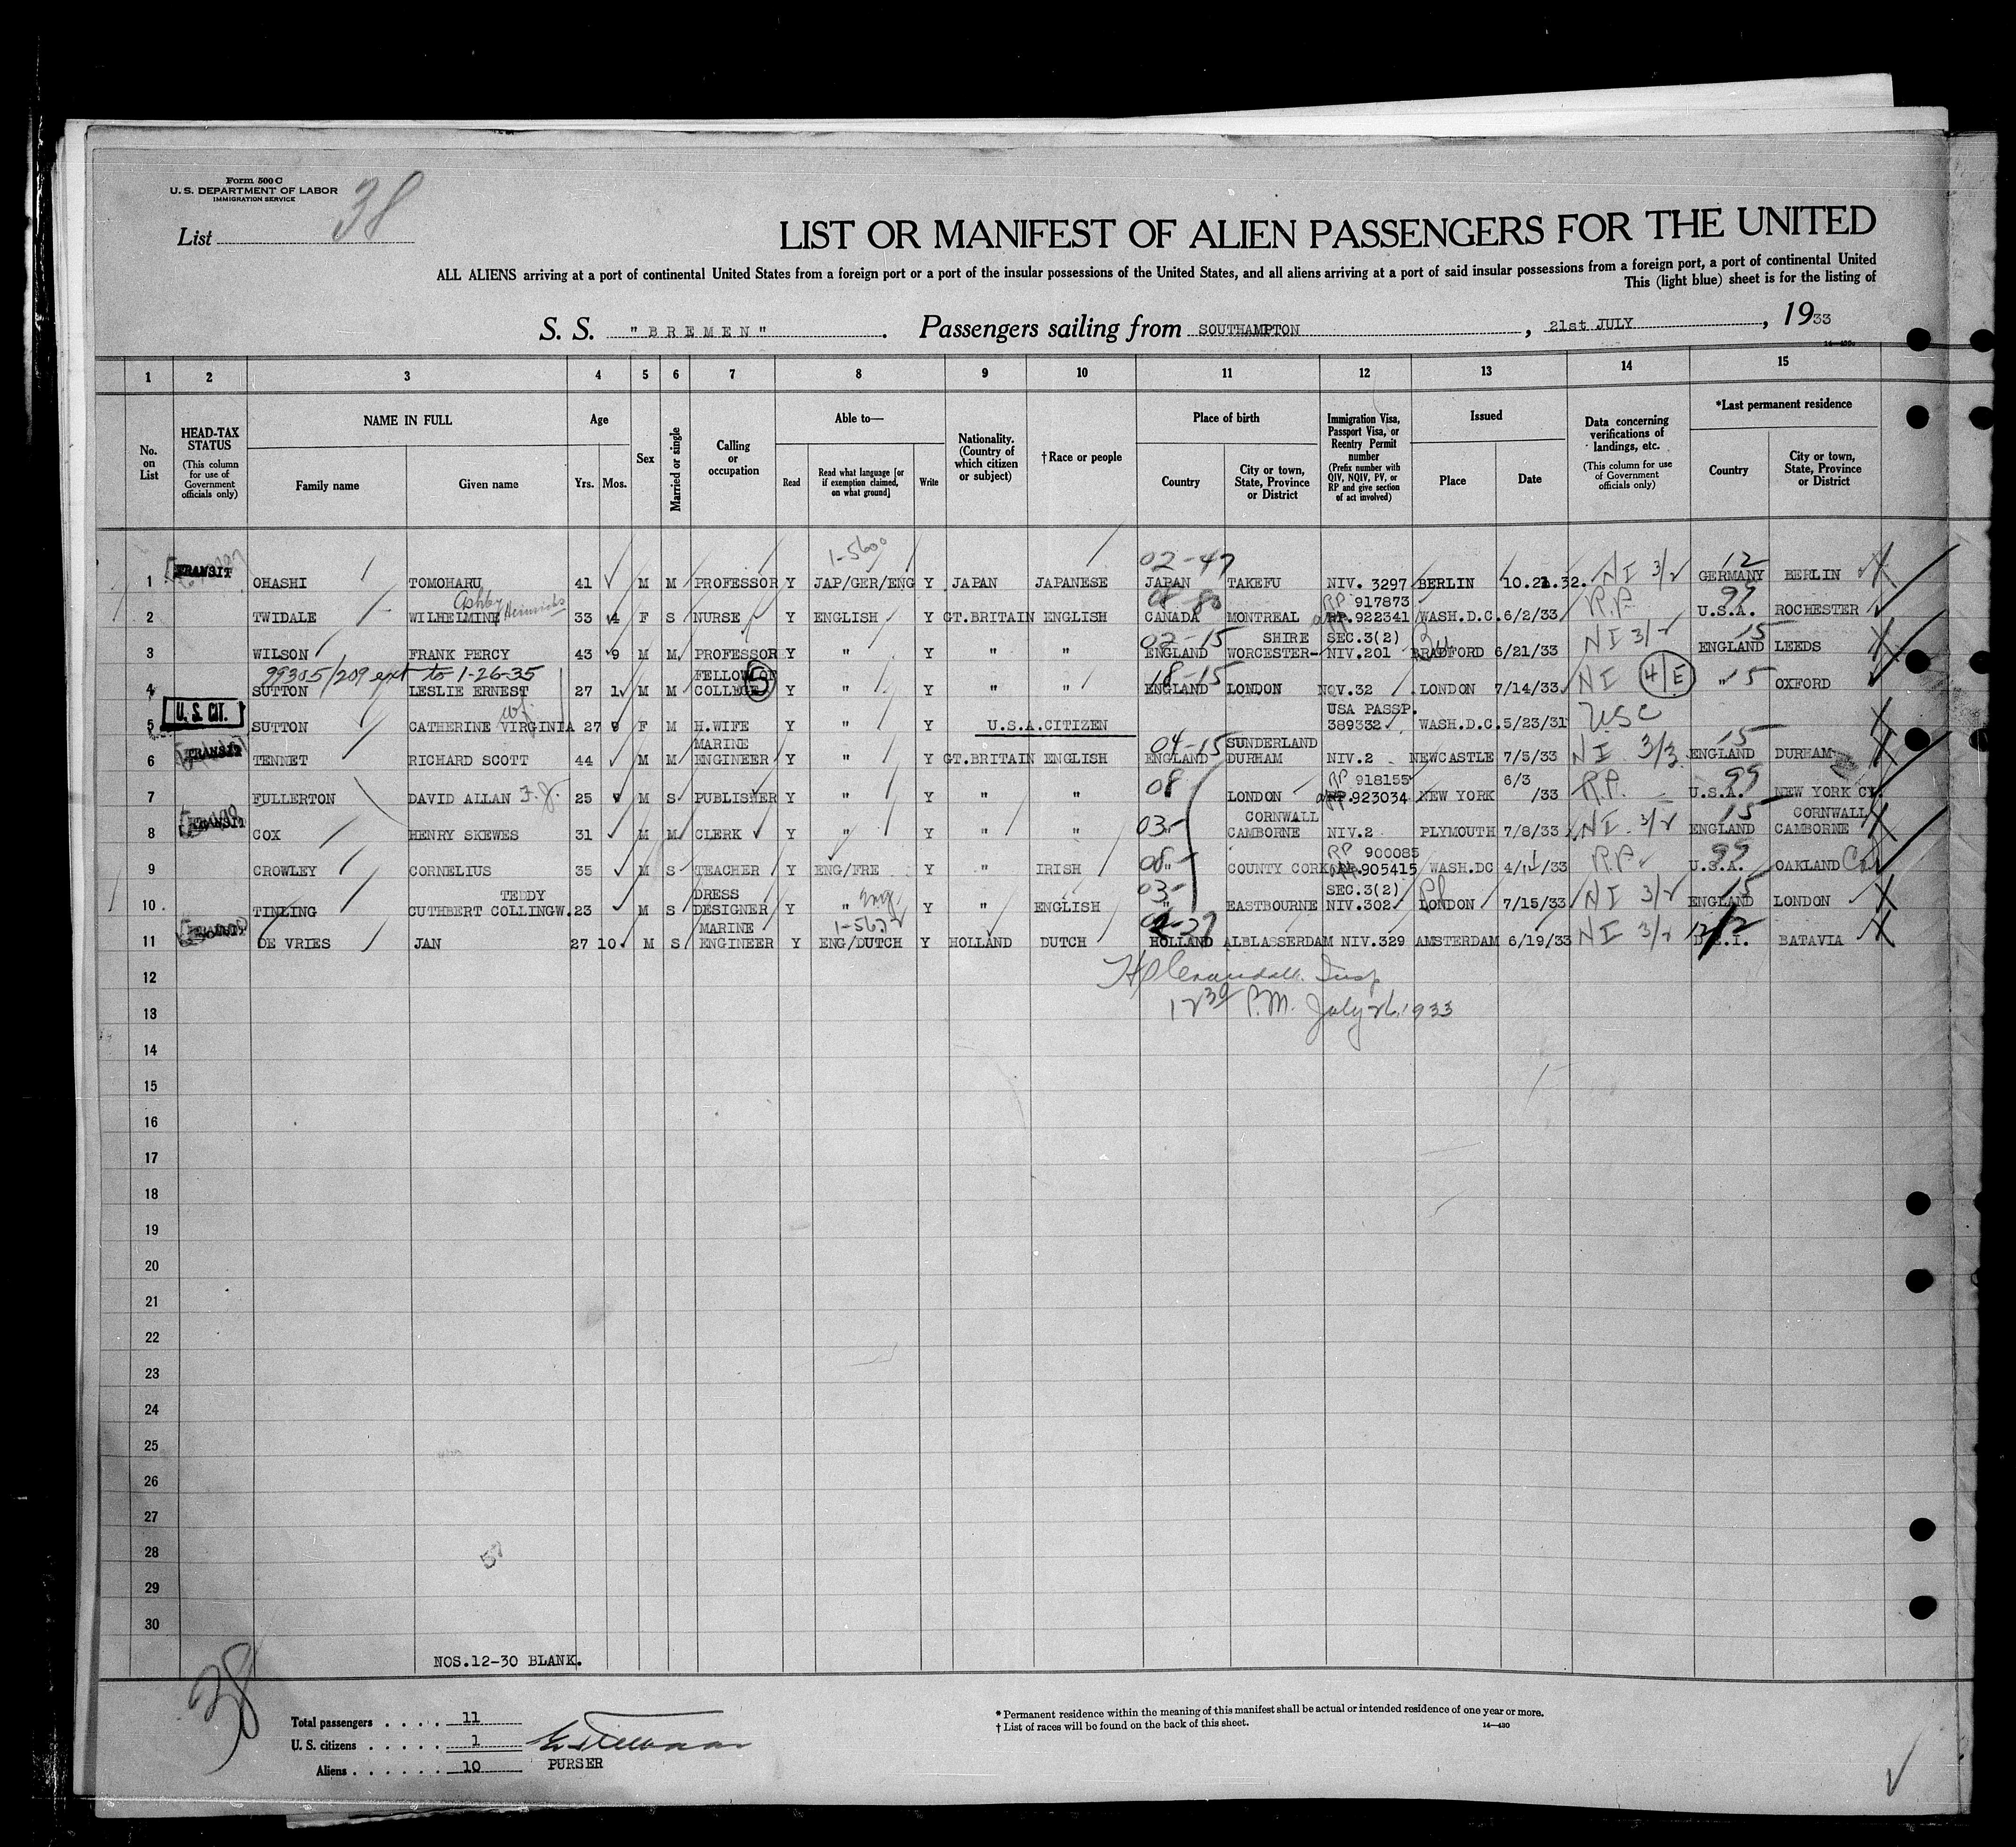 Form 500 C
U. S. DEPARTMENT OF LABOR
IMMIGRATION SERVICE
List 38
LIST OR MANIFEST OF ALIEN PASSENGERS FOR THE UNITED
ALL ALIENS arriving at a port of continental United States from a foreign port or a port of the insular possessions of the United States, and all aliens arriving at a port of said insular possessions from a foreign port, a port of continental United
This (light blue) sheet is for the listing of
S. S. "BREMEN". Passengers sailing from SOUTHAMPTON, 21st JULY, 1933
1 2 3 4 5 6 7 8 9 10 11 12 13 14 15
No. on List
HEAD-TAX STATUS (This column for use of Government officials only)
NAME IN FULL
Family name
Given name
Age
Yrs. Mos.
Sex
Married or single
Calling or occupation
Able to—
Read
Read what language [or if exemption claimed, on what ground]
Write
Nationality. (Country of which citizen or subject)
†Race or people
Place of birth
Country
City or town, State, Province or District
Immigration Visa, Passport Visa, or Reentry Permit number (Prefix number with QIV, NQIV, PV, or RP and give section of act involved)
Issued
Place
Date
Data concerning verifications of landings, etc. (This column for use of Government officials only)
*Last permanent residence
Country
City or town, State, Province or District
1-5600 02-47 12
1 TRANSIT OHASHI TOMOHARU 41 M M PROFESSOR Y JAP/GER/ENG Y JAPAN JAPANESE JAPAN TAKEFU NIV. 3297 BERLIN 10.21.32. NI 3/2 GERMANY BERLIN
Ashby Heinrichs 08-80 RP 917873 99
2 TWIDALE WILHELMINE 33 4 F S NURSE Y ENGLISH Y GT.BRITAIN ENGLISH CANADA MONTREAL RP.922341 WASH.D.C. 6/2/33 R.P. U.S.A. ROCHESTER
02-15 SHIRE SEC.3(2) 15
3 WILSON FRANK PERCY 43 9 M M PROFESSOR Y " Y " " ENGLAND WORCESTER- NIV.201 BRADFORD 6/21/33 NI 3/2 ENGLAND LEEDS
99305/209 ext to 1-26-35 FELLOW OF 5 18-15
4 SUTTON LESLIE ERNEST 27 1 M M COLLEGE Y " Y " " ENGLAND LONDON NOV.32 LONDON 7/14/33 NI 4/E " 15 OXFORD
U.S. CIT. wf. USA PASSP.
5 SUTTON CATHERINE VIRGINIA 27 9 F M H.WIFE Y " Y U.S.A.CITIZEN 389332 WASH.D.C. 5/23/31 USC
TRANSIT MARINE 04-15 SUNDERLAND 15
6 TENNET RICHARD SCOTT 44 M M ENGINEER Y " Y GT.BRITAIN ENGLISH ENGLAND DURHAM NIV.2 NEWCASTLE 7/5/33 NI 3/3 ENGLAND DURHAM
08 RP 918155 6/3 99
7 FULLERTON DAVID ALLAN F.J. 25 9 M S PUBLISHER Y " Y " " LONDON RP.923034 NEW YORK /33 R.P. U.S.A. NEW YORK CY.
TRANSIT 03- CORNWALL 15 CORNWALL
8 COX HENRY SKEWES 31 M M CLERK Y " Y " " CAMBORNE NIV.2 PLYMOUTH 7/8/33 NI 3/2 ENGLAND CAMBORNE
08- RP 900085 99
9 CROWLEY CORNELIUS 35 M S TEACHER Y ENG/FRE Y " IRISH " COUNTY CORK RP.905415 WASH.DC 4/11/33 R.P. U.S.A. OAKLAND Cal
TEDDY DRESS Eng 03- SEC.3(2) 15
10 TINLING CUTHBERT COLLINGW. 23 M S DESIGNER Y " Y " ENGLISH " EASTBOURNE NIV.302 LONDON 7/15/33 NI 3/2 ENGLAND LONDON
TRANSIT MARINE 1-5632 12
11 DE VRIES JAN 27 10 M S ENGINEER Y ENG/DUTCH Y HOLLAND DUTCH HOLLAND ALBLASSERDAM NIV.329 AMSTERDAM 6/19/33 NI 3/2 D.E.I. BATAVIA
12
Insp
13
12 30 P.M. July 26, 1933
14
15
16
17
18
19
20
21
22
23
24
25
26
27
28
29
30
NOS.12-30 BLANK.
38
Total passengers . . . . 11
U. S. citizens . . . . . 1
Aliens . . . . . . 10
PURSER
* Permanent residence within the meaning of this manifest shall be actual or intended residence of one year or more.
† List of races will be found on the back of this sheet.
14—430